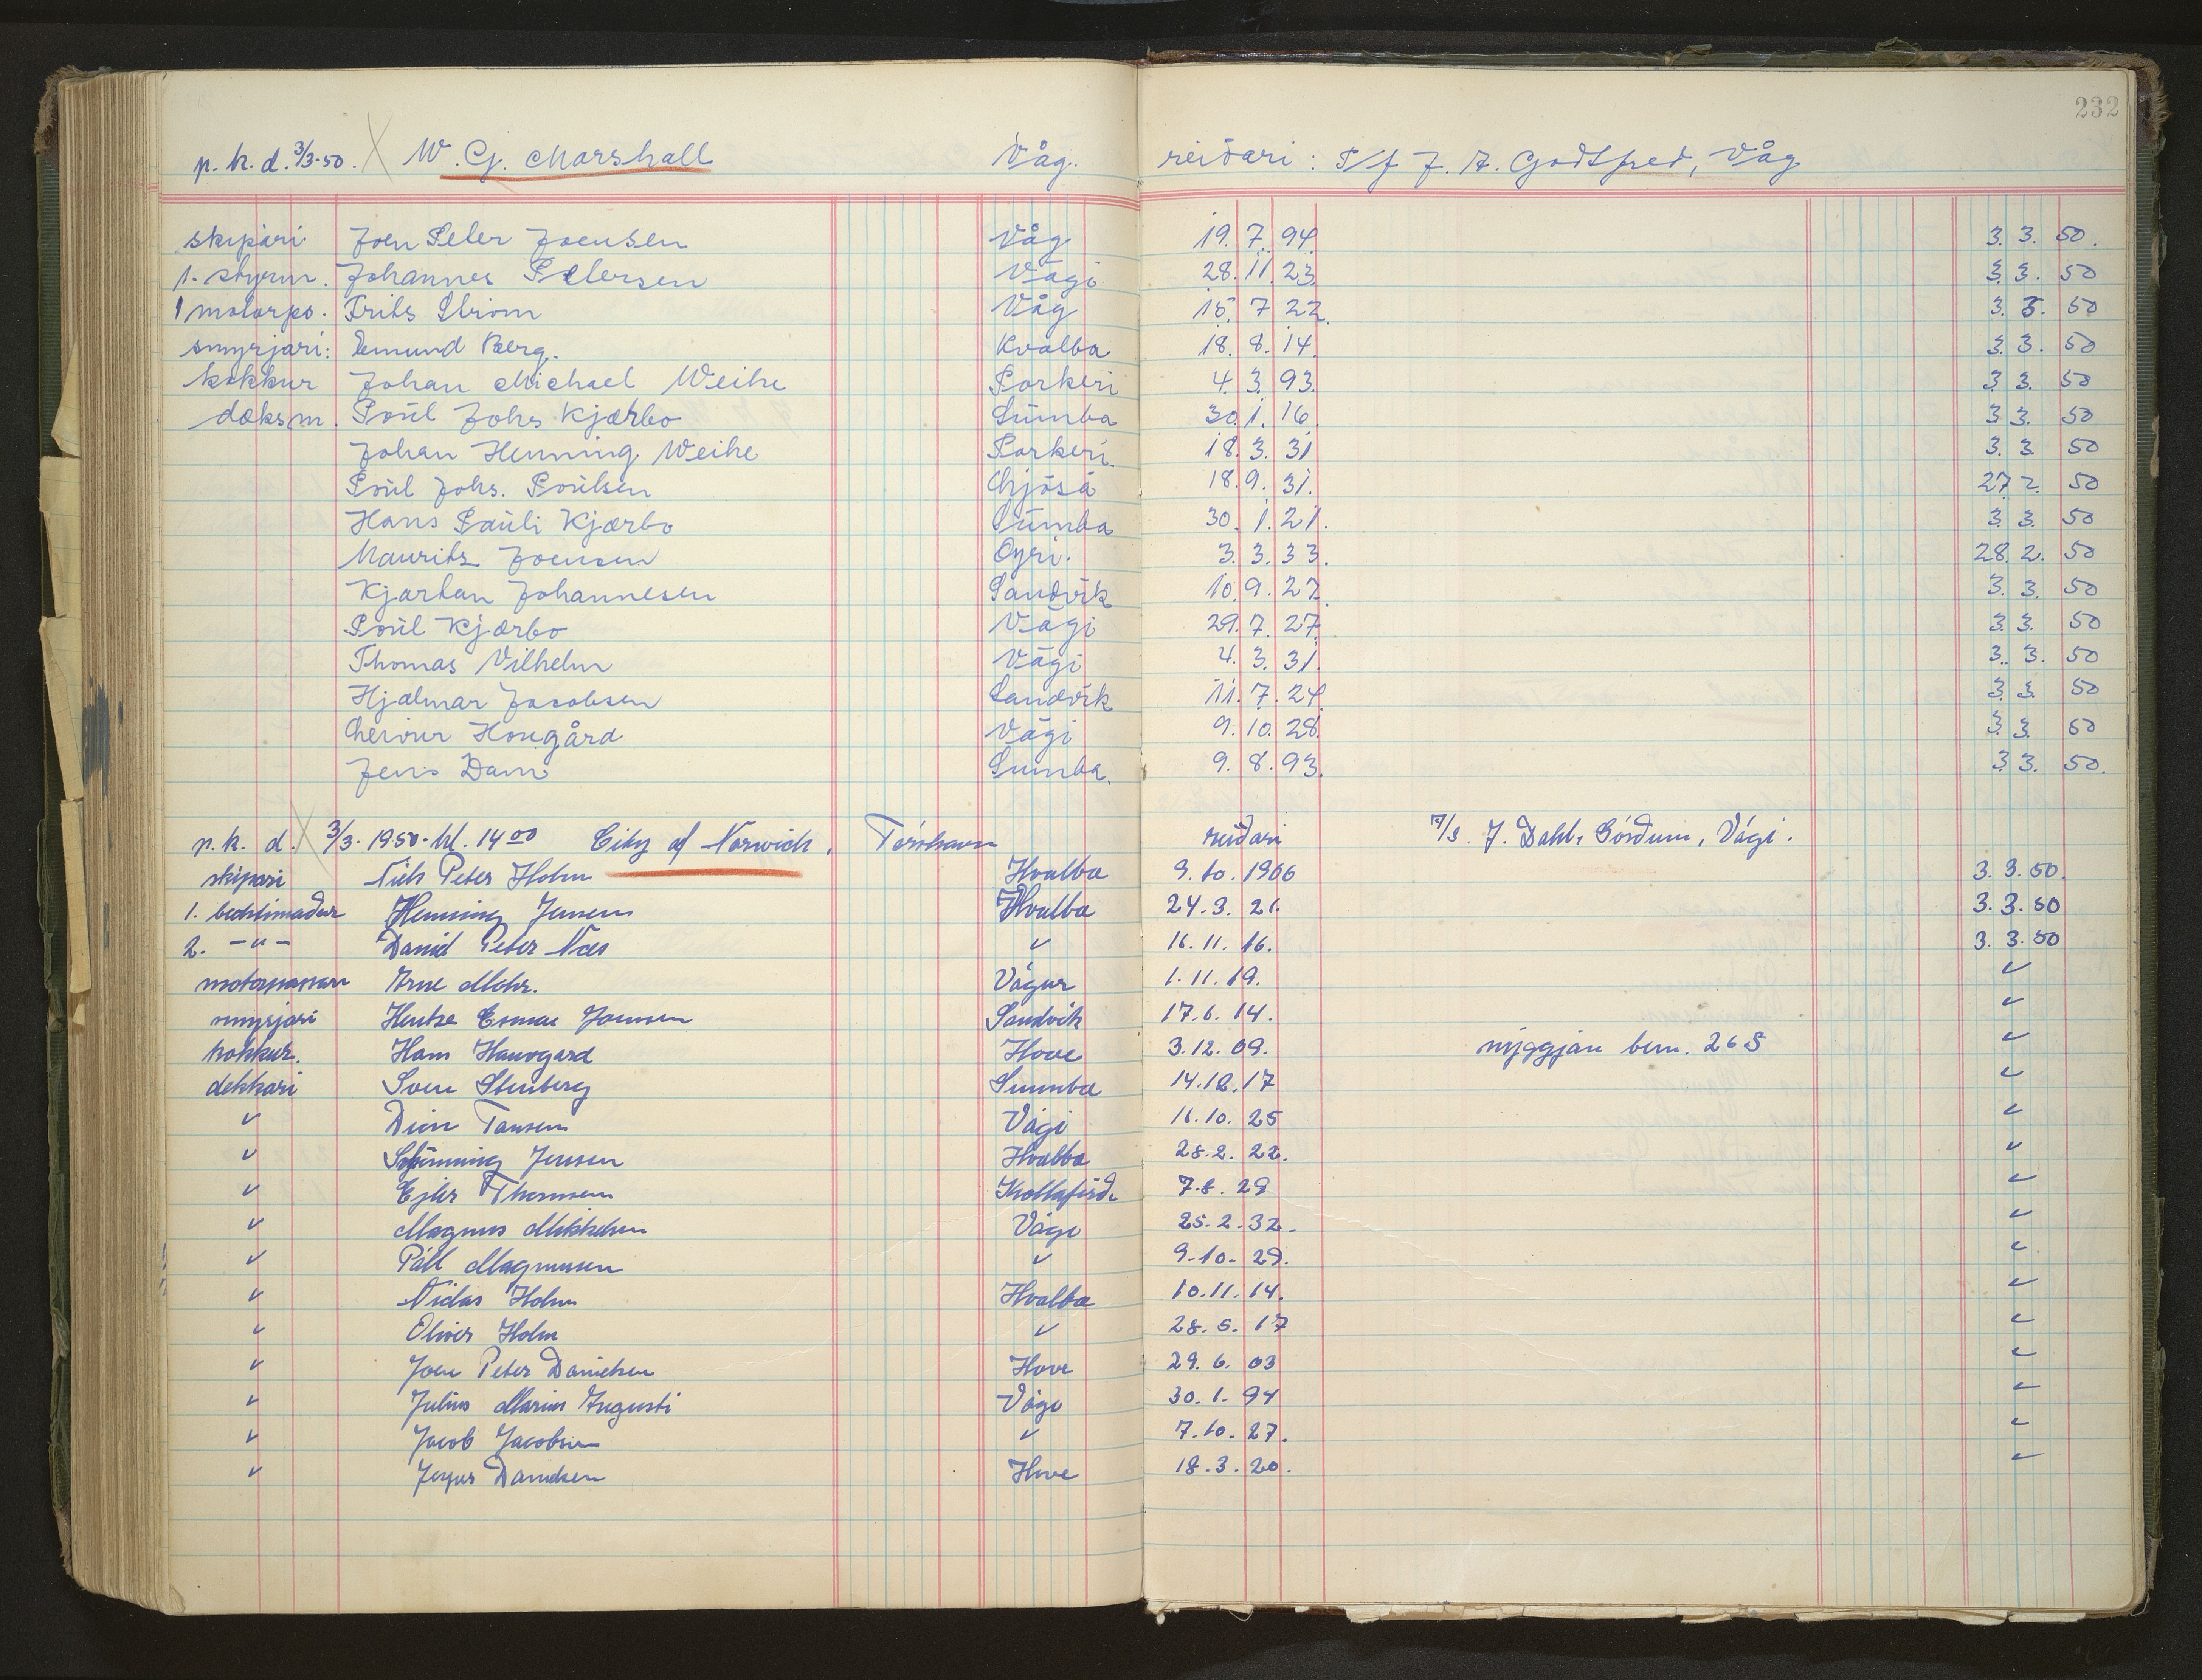 232
p. k. d. 3/3-50. W. G. Marshall Våg. reiðari: P/f J. A. Godtfred, Våg
skipari Joen Peter Joensen Våg 19. 7. 94 3. 3. 50.
1. styrm. Johannes Petersen Vági 28. 11. 23 3. 3. 50
1 motorps. Frits Strøm Våg 15. 7 22. 3. 3. 50
smyrjari: Edmund Berg. Kvalba 18. 8. 14. 3. 3. 50
kokkur Johan Michael Weihe Porkeri 4. 3. 93. 3 3. 50
dæksm. Poul Johs Kjærbo Sumba 30. 1. 16. 3 3. 50
Johan Henning Weihe Porkeri. 18. 3. 31 3. 3. 50
Poul Johs. Poulsen 18. 9. 31. 27 2. 50
Hans Pauli Kjærbo Sumba 30. 1. 21. 3. 3. 50
Maurits Joensen Øyri. 3. 3. 33. 28. 2. 50
Kjartan Johannesen Sandvík 10. 9. 22. 3. 3. 50
Poul Kjærbo Vági 29. 7. 27. 3. 3. 50
Thomas Vilhelm Vági 4. 3. 31. 3. 3. 50
Hjalmar Jacobsen Sandvík 11. 7. 24. 3. 3. 50
Hougård Vági 9. 10. 28. 3. 3. 50
Jens Dam Sumba. 9. 8. 93. 3 3. 50.
p. k. d. 3/3. 1950. kl. 14 00 City of Norwich, Tórshavn reiðari P/f. J. Dahl, Vági.
skipari Niels Peter Holm Hvalba 9. 10. 1906 3. 3. 50.
1. bestimaður Henning Jensen Hvalba 24. 3. 21. 3. 3. 50
2. -"- David Peter Næs " 16. 11. 16. 3. 3. 50
motorpassari Arne Mohr. Vágur 1. 11. 19. "
smyrjari Joensen Sandvík 17. 6. 14. "
kokkur. Hans Hauvgard Hove 3. 12. 09. nýggjan bem. 265 "
dekkari Sven Stenberg Sumba 14. 12. 17 "
" Tausen Vági 16. 10. 25 "
" Jensen Hvalba 28. 2. 22. "
" Ejler Thomsen Kollafirði 7. 8. 29 "
" Magnus Mikkelsen Vági 25. 2. 32. "
" Páll Magnussen " 9. 10. 29. "
" Niclas Holm Hvalba 10. 11. 14. "
" Oliver Holm " 28. 5. 17 "
" Joen Peter Danielsen Hove 29. 6. 03 "
" Julius Marius Augusti Vági 30. 1. 94 "
" Jacob Jacobsen " 7. 10. 27. "
" Danielsen Hove 18. 3. 20. "